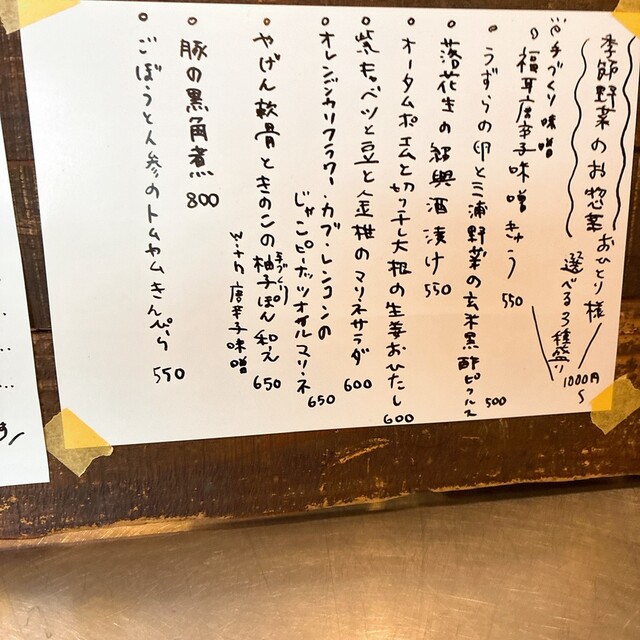 季節野菜のお惣菜
おひとり様
選べる3種盛り
1000円〜
手づくり味噌
福耳唐辛子味噌きゅう 550
うずらの卵と三浦野菜の玄米黒酢ピクルス 500
落花生の紹興酒漬け 550
オータムポエムと切り干し大根の生姜おひたし 600
紫キャベツと豆と金柑のマリネサラダ 600
オレンジカリフラワー・カブ・レンコンの
じゃこピーナッツオイルマリネ 650
やげん軟骨ときのこの手づくり柚子ぽん和え 650
with 唐辛子味噌
豚の黒角煮 800
ごぼうと人参のトムヤムきんぴら 550